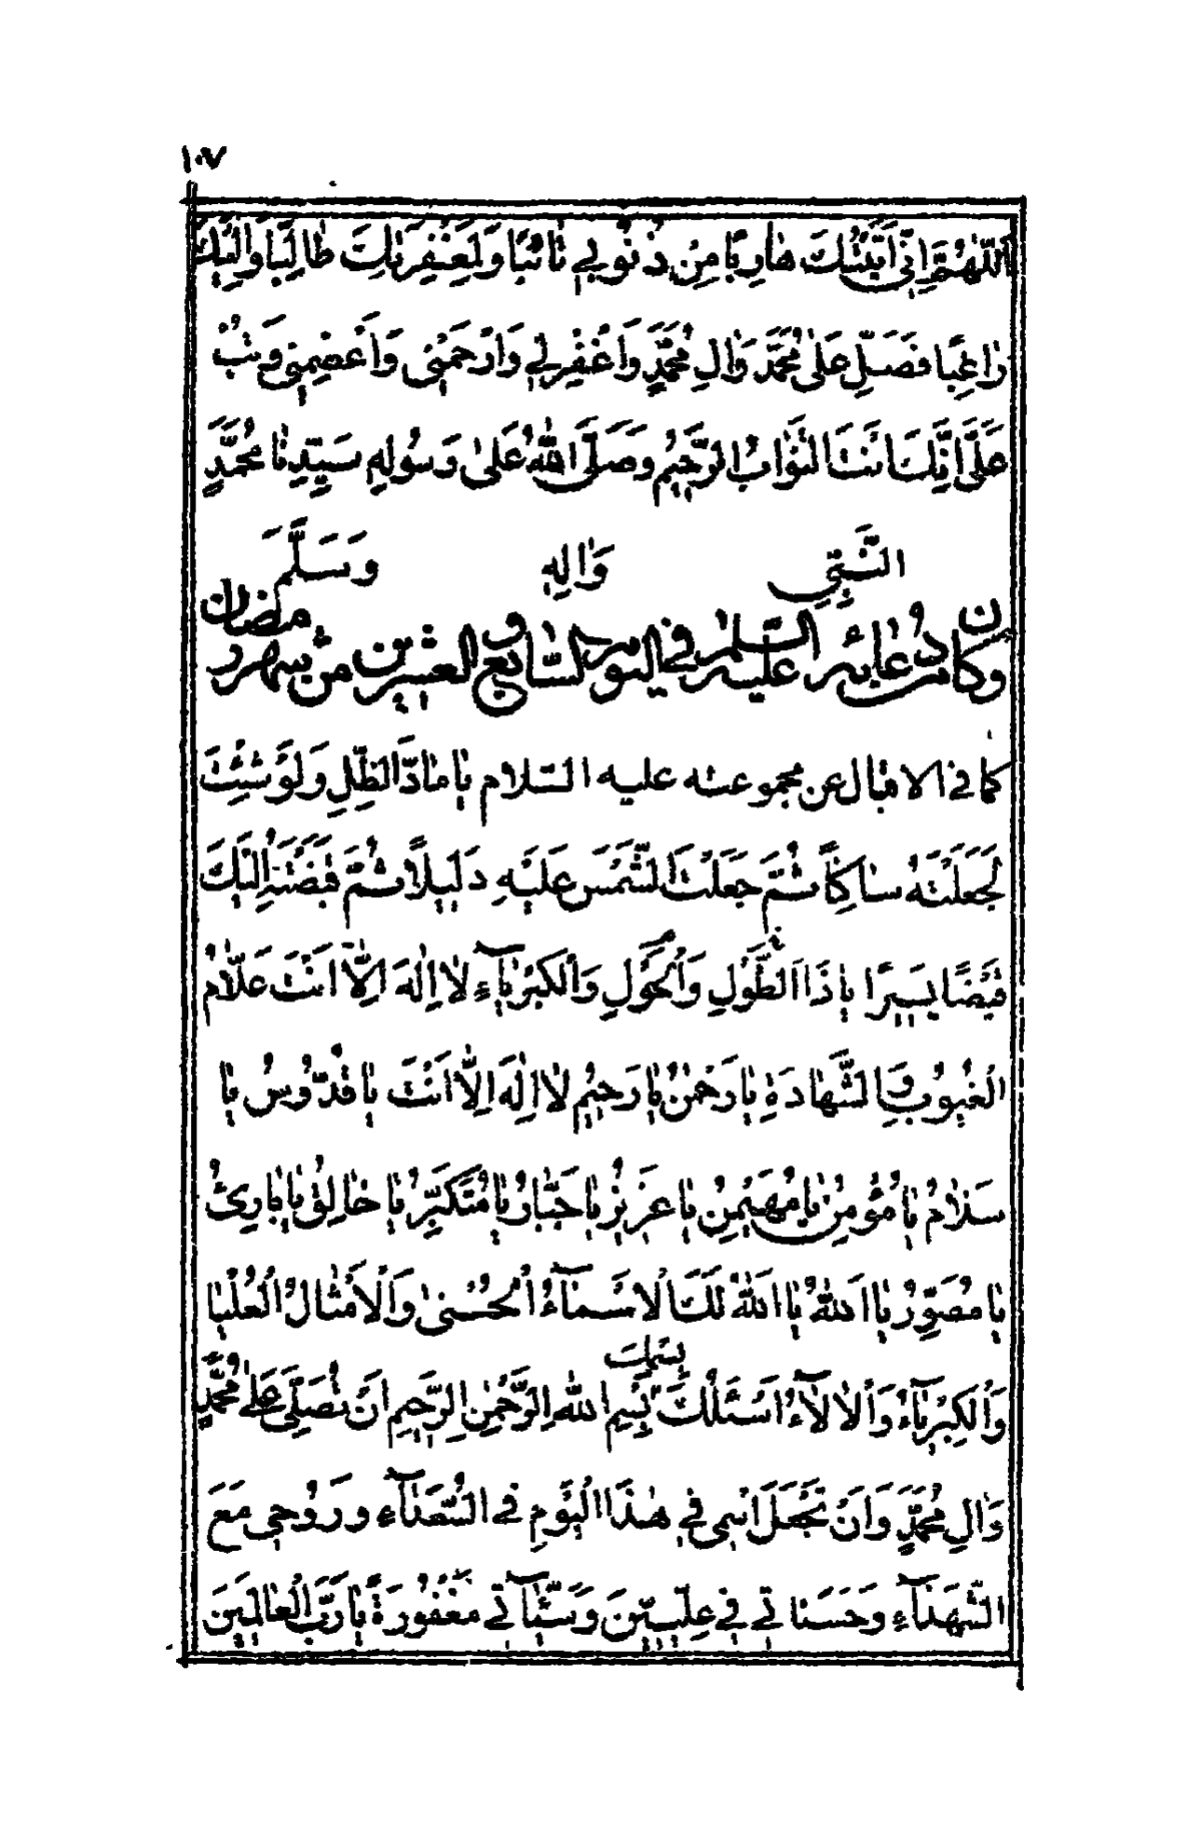 ١٠٧
اَللّٰهُمَّ اِنّٖى اَتَيْتُكَ هٰارِبًا مِنْ ذُنُوبٖى تٰائِبًا وَلِمَغْفِرَتِكَ طٰالِبًا وَاِلَيْكَ
رٰاغِبًا فَصَلِّ عَلٰى مُحَمَّدٍ وَاٰلِ مُحَمَّدٍ وَاغْفِرْلٖى وَارْحَمْنٖى وَاعْصِمْنٖى وَتُبْ
عَلَىَّ اِنَّكَ اَنْتَ التَّوّٰابُ الرَّحٖيمُ وَصَلَّى اللّٰهُ عَلىٰ رَسُولِهِ سَيِّدِنٰا مُحَمَّدٍ
النَّبِىِّ وَاٰلِهِ وَسَلَّمَ
وكان من دعائه عليه السلام فى اليوم السابع والعشرين من شهر رمضان
كما فى الاقبال عن مجموعته عليه السلام يٰا مٰادَّ الظِّلِّ وَلَوْ شِئْتَ
لَجَعَلْتَهُ سٰاكِنًا ثُمَّ جَعَلْتَ الشَّمْسَ عَلَيْهِ دَلٖيلًا ثُمَّ قَبَضْتَهُ اِلَيْكَ
قَبْضًا يَسٖيرًا يٰا ذَا الطَّوْلِ وَالْحَوْلِ وَالْكِبْرِيٰآءِ لٰا اِلٰهَ اِلّٰا اَنْتَ عَلّٰامُ
الْغُيُوبِ وَالشَّهٰادَةِ يٰا رَحْمٰنُ يٰا رَحٖيمُ لٰا اِلٰهَ اِلّٰا اَنْتَ يٰا قُدُّوسُ يٰا
سَلٰامُ يٰا مُؤْمِنُ يٰا مُهَيْمِنُ يٰا عَزٖيزُ يٰا جَبّٰارُ يٰا مُتَكَبِّرُ يٰا خٰالِقُ يٰا بٰارِئُ
يٰا مُصَوِّرُ يٰا اَللّٰهُ يٰا اَللّٰهُ لَكَ الْاَسْمٰآءُ الْحُسْنىٰ وَالْاَمْثٰالُ الْعُلْيٰا
وَالْكِبْرِيٰآءُ وَالْاٰلٰآءُ اَسْئَلُكَ بِسْمِ اللّٰهِ الرَّحْمٰنِ الرَّحٖيمِ اَنْ تُصَلِّىَ عَلٰى مُحَمَّدٍ
وَاٰلِ مُحَمَّدٍ وَاَنْ تَجْعَلَ اسْمٖى فٖى هٰذَا الْيَوْمِ فِى السُّعَدٰآءِ وَرُوحٖى مَعَ
الشُّهَدٰآءِ وَحَسَنٰاتٖى فٖى عِلِّيّٖينَ وَسَيِّئٰاتٖى مَغْفُورَةً يٰا رَبَّ الْعٰالَمٖينَ